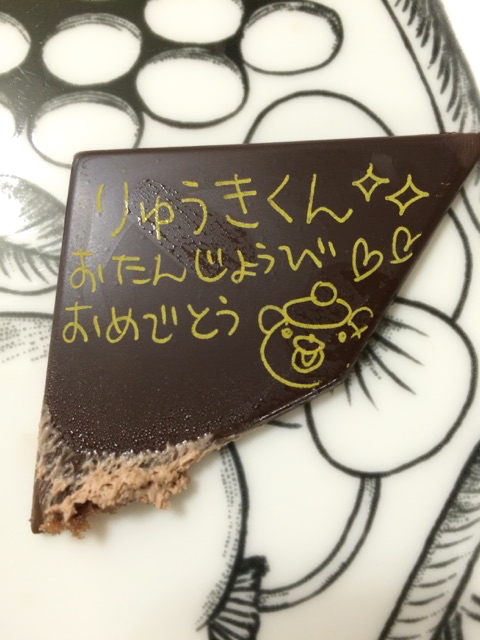 りゅうきくん
おたんじょうび
おめでとう